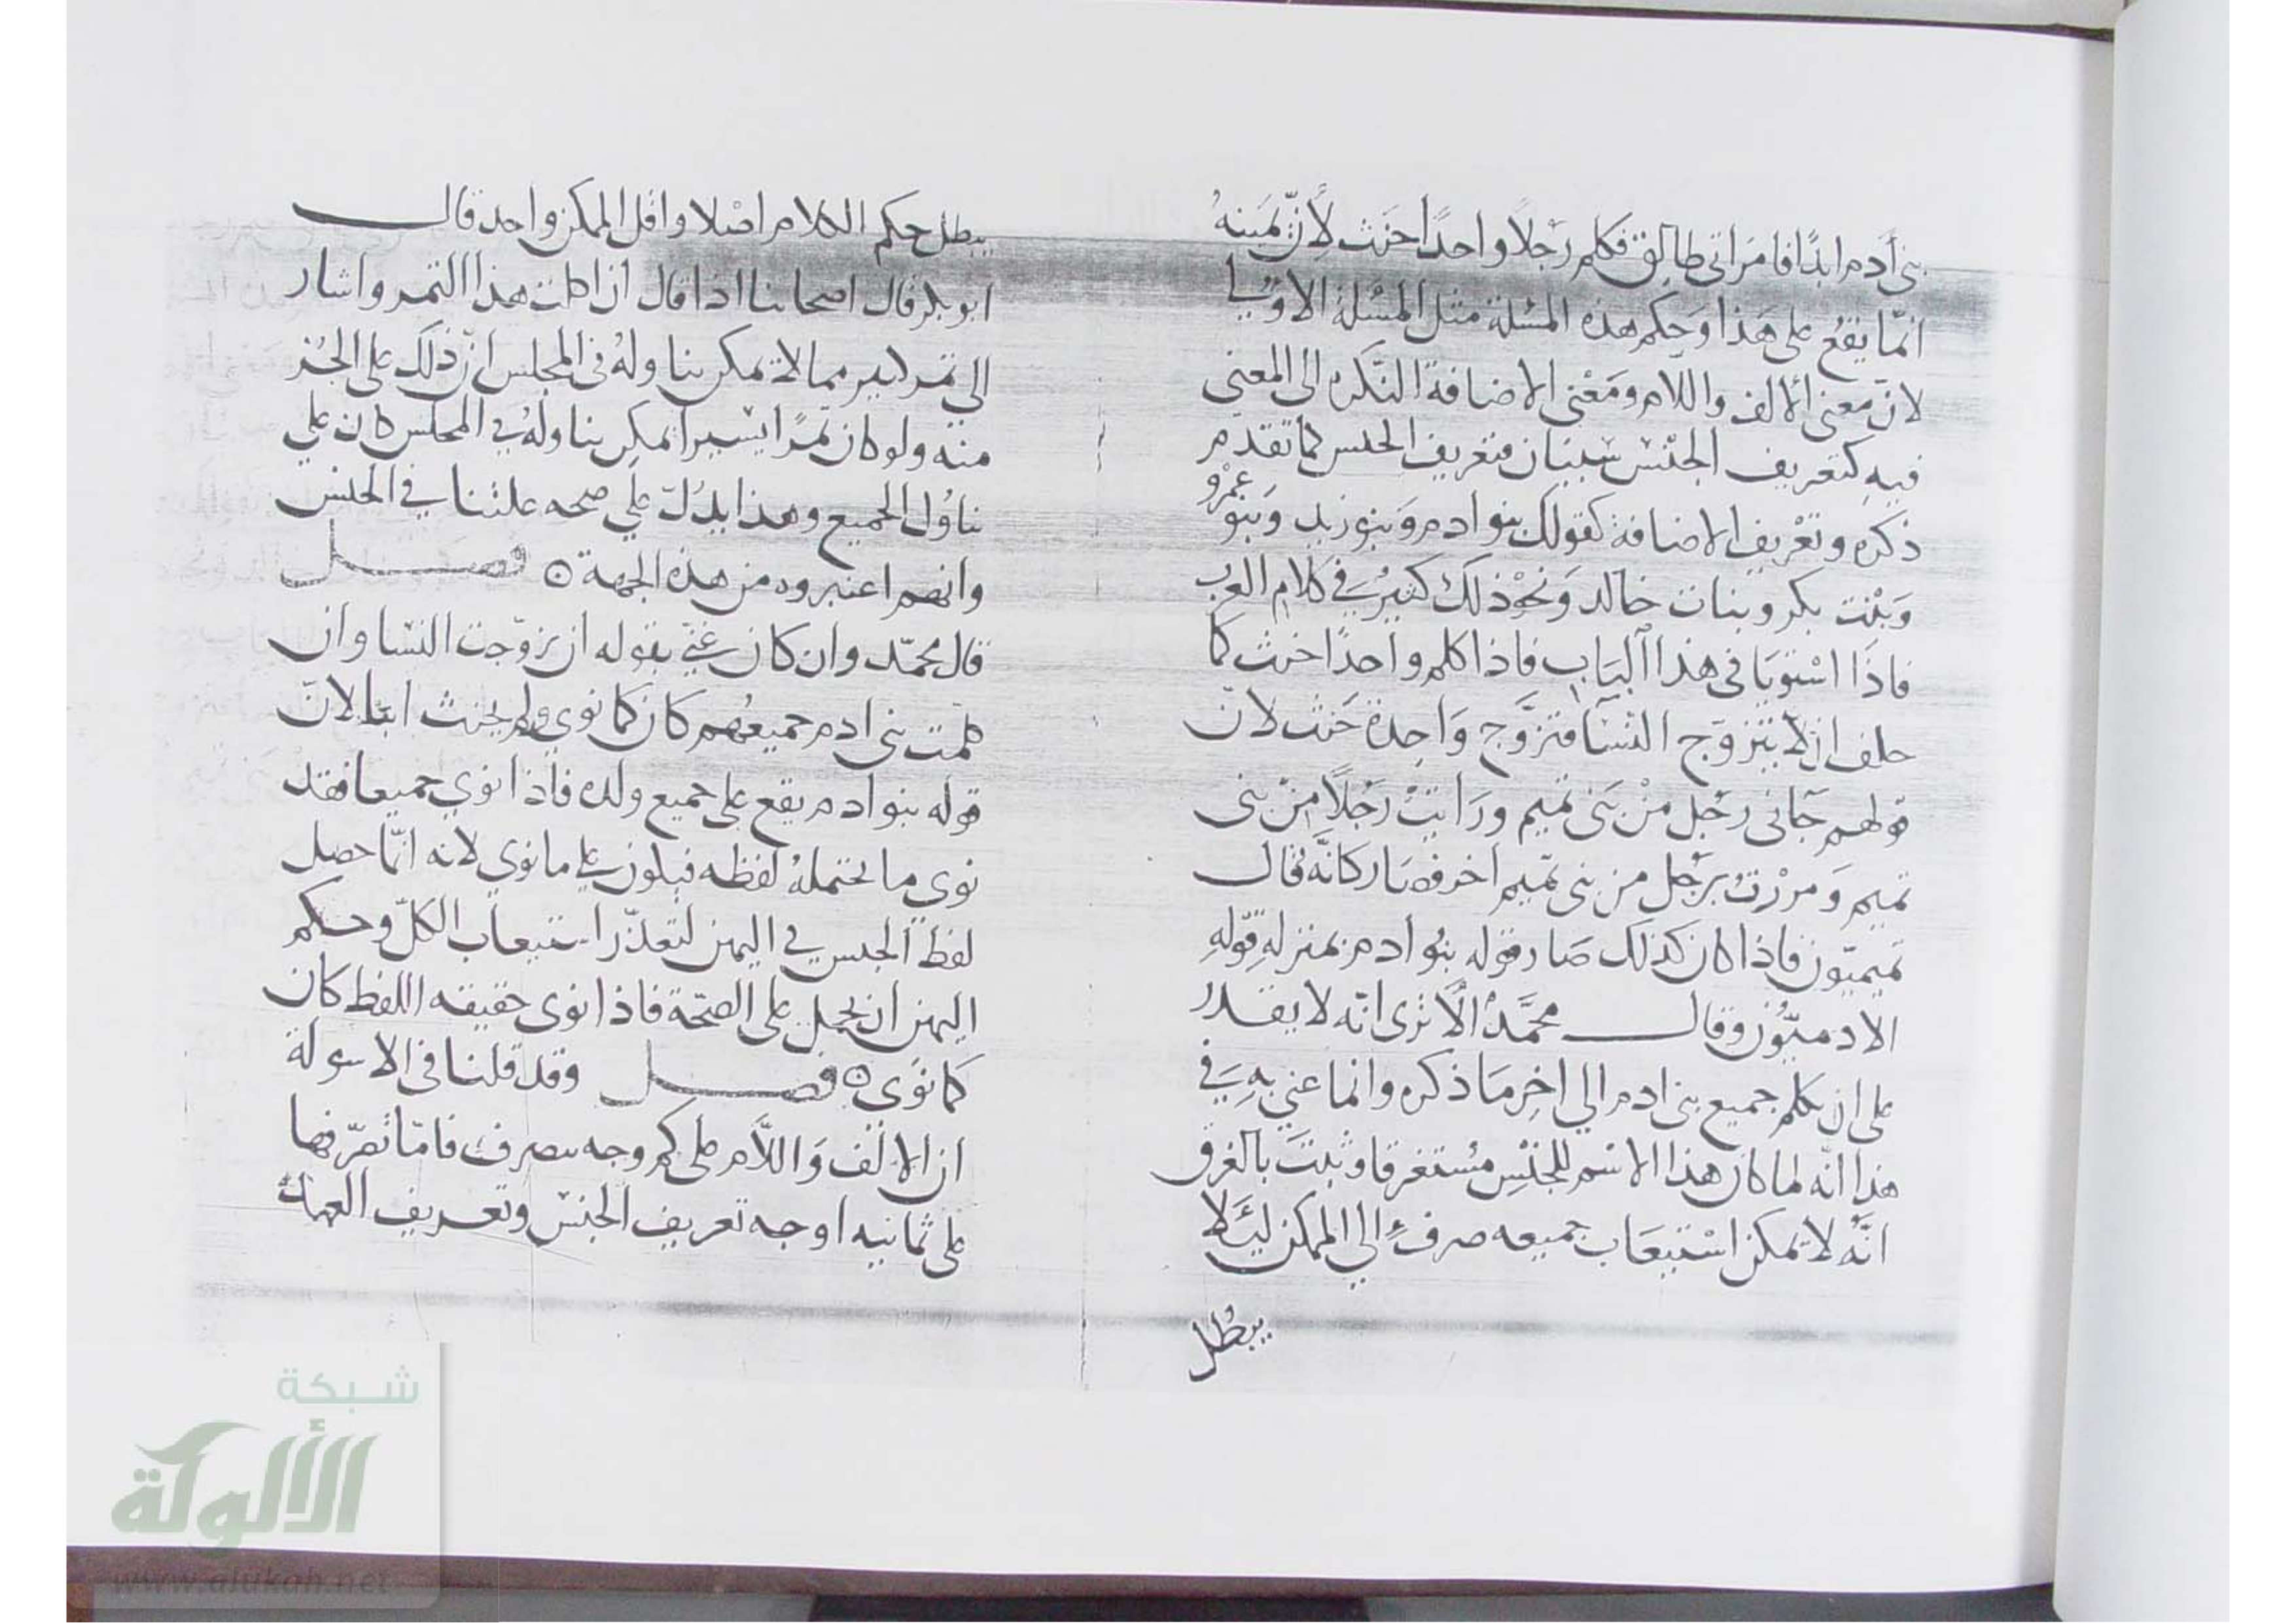 بنى أدم ابدًا فامرَاتى طالِق فكلم رَجْلًا واحدًا حَنث لأنّ يَمينهُ
انمّا يَقعُ على هَذا وَحكم هذه المسْئلة مثل المسْئلة الاوّلي
لانّ معنى الالف واللام ومَعْنى الاضافة النّكره الى المعنى
فيهِ كتعريف الجنْس سَببَان فتعريف الجنس كما تقدم
ذكره وتعْريف الاضافة كقولك بنو ادم وَبنو زيد وَبنو عَمْرو
وَبنْت بكر وبنات خالد وَنحْو ذلك كثيرٌ في كلام العرب
فاذَا اسْتويَا فى هذا البَاب فاذا كلم واحدًا حنث كما
حلف ان لا يتزوّج النسَآ فتزوَّج وَاحِدة حَنث لانّ
قولهم جَآنى رَجُل منْ بَنى تميم ورَايتْ رَجُلًا منْ بنى
تميم وَمرْرتُ برَجُل من بنى تميم اخر فصَار كانَّه قال
تميميّون فاذا كان كذلك صَار قوله بنُو ادم بمنزلهِ قوْلهِ
الادميّون وقال محمَّدٌ الَا ترى انّه لا يقدرُ
على ان يكلم جميع بنى ادم الي اخِر مَا ذكره وانما عني بهِ في
هذا انّه لما كان هذا الاسْم للجنْسِ مسْتغرقا وثبتَ بالفرق
انَّه لا يمكن اسْتيعَاب جميعه صرفَ الي الممكن ليَلا
يبطُل
يبطل حكم الكلام اصْلا واقل الممكن واحد قال
ابو بكر قال اصحابنا اذا قال ان اكلت هذا التمر واشار
الى تمر كثير مما لا يمكن تناولهُ فى المجلس انّ ذلك على الجُز
منه ولو كان تمرًا يسْيرا يمكِن تناولهُ في المجلس كان على
تناوُل الجميع وهذا يدُلّ على صحه علتنا في الجنس
وانهم اعتبروه من هذه الجهة ه فصل
قال محمّد وان كان عَنى بقوله ان تزوّجت النسْا وان
كلمت بنى ادم جميعهُم كان كما نوى ولم يحنث ابدا لانّ
قوله بنو ادم يقع على جميع ولده فاذا نوي جميعا فقد
نوى ما يحتملهُ لفظه فيكون علي ما نوي لانه انمّا حصل
لفظ الجنس في اليمين لتعذّر استيعاب الكلّ وحكم
اليمين ان يحمل على الصّحّة فاذا نوى حقيقه اللفظ كان
كما نوَى ه فصل وقد قلنا فى الاسولة
ان الالف وَاللّام على كم وجه يتصرف فامّا تصرّفها
على ثمانيه اوجه تعريف الجنسْ وتعريف العهد
شبكة
الألوكة
www.alukah.net